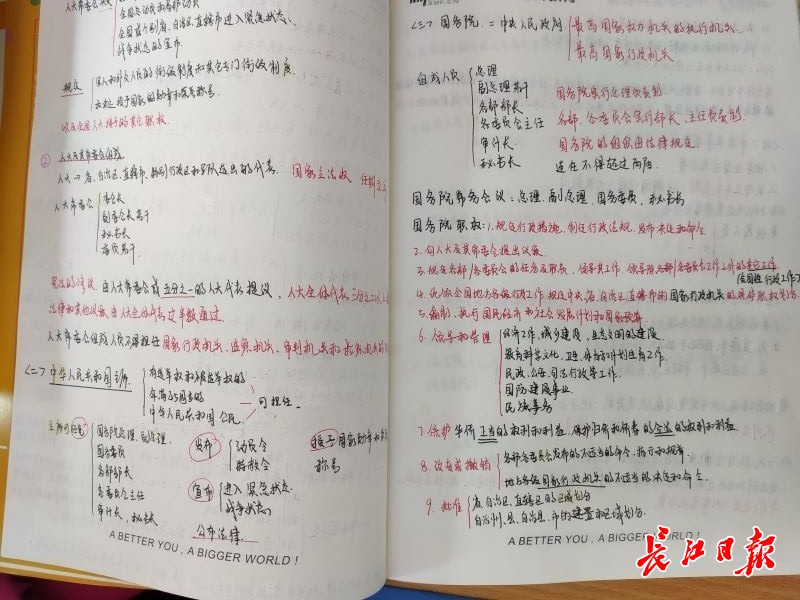 全国个别省、自治区、直辖市进入紧急状态、
战争状态的宣布
规定
军人和外交人员的衔级制度和其它专门衔级制度
决定授予国家的勋章和荣誉称号
以及全国人大授予的其它职权
② 人大及其常委会组成
人大→省、自治区、直辖市、特别行政区和军队选出的代表. 国家立法权
人大常委会
委员长
副委员长若干
秘书长
委员若干
宪法的修改 由人大常委会或五分之一的人大代表提议
法律和其他议案 由人大全体代表过半数通过
人大常委会组成人员不得担任国家行政机关、监察机关、审判机关和检察机关的
(二) 中华人民共和国主席
有选举权和被选举权的
年满45周岁的
中华人民共和国公民
可担任.
国务院总理、副总理、
国务委员
各部部长
各委员会主任
审计长、秘书长
发布
动员令
特赦令
授予国家勋章和
称号
宣布
进入紧急状态
战争状态
公布法律.
A BETTER YOU , A BIGGER WORLD !
(三) 国务院 = 中央人民政府
最高国家权力机关的执行机关
最高国家行政机关
组成人员
总理
副总理若干
各部部长
各委员会主任
审计长
秘书长
国务院实行总理负责制
各部、各委员会实行部长、主任负责制.
国务院的组织由法律规定.
连任不得超过两届.
国务院常务会议：总理、副总理、国务委员、秘书长
国务院职权：1. 规定行政措施，制定行政法规，发布决定和命令
2. 向人大及其常委会提出议案
3. 规定各部/各委员会的任务及职责，领导其工作，领导除各部/各委员会工作之外的其它工作
(全国性行政工作)
4. 统一领导全国地方各级行政工作，规定中央、省、自治区、直辖市的国家行政机关的具体职权划分.
5. 编制、执行国民经济和社会发展计划和国家预算
6. 领导和管理
经济工作、城乡建设、生态文明的建设
教育科学文化、卫生、体育和计划生育工作.
民政、公安、司法行政等工作.
国防建设事业
民族事务
7. 保护华侨正当的权利和利益，保护归侨和侨眷的合法的权利和利益.
8. 改变或撤销
各部各委员会发布的不适当的命令、指示和规章
地方各级国家行政机关的不适当的决定和命令.
9. 批准
省、自治区、直辖区的区域划分
自治州、县、自治县、市的建置和区域划分.
A BETTER YOU , A BIGGER WORLD !
长江日报